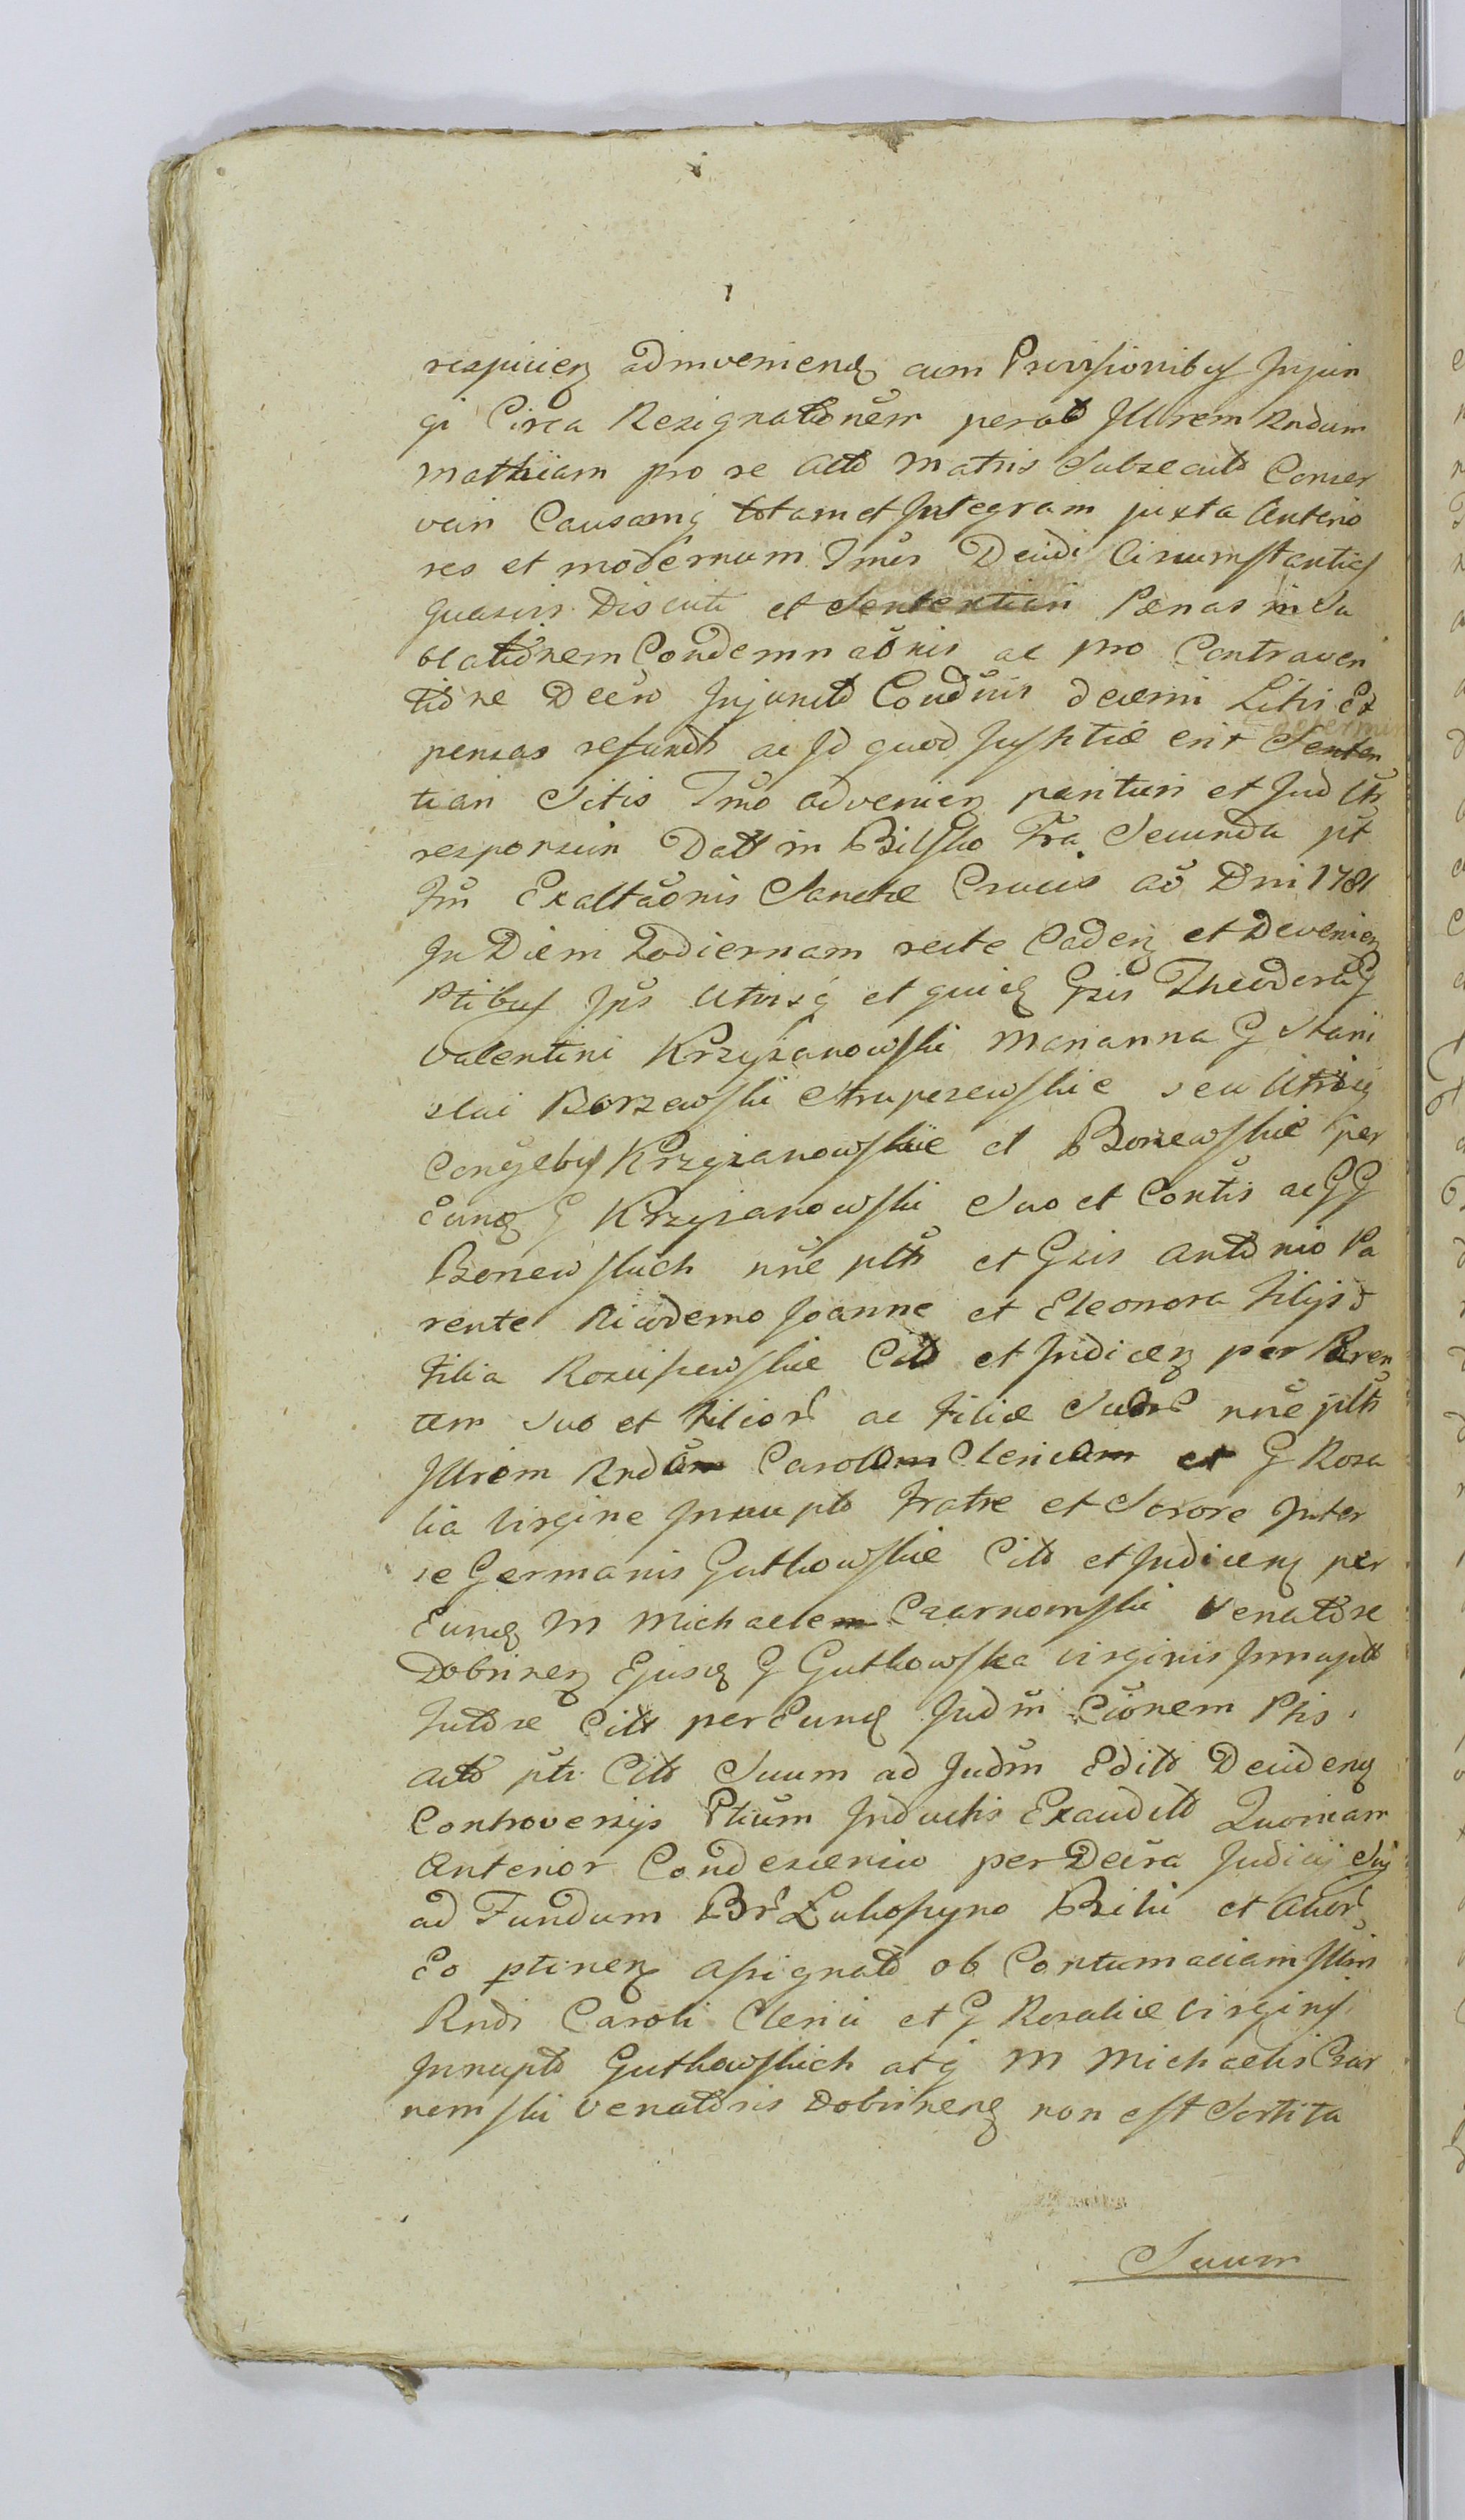 respicien adinvenienq cum Provisionibus Injun
gi Circa Resignationem perac Illrem Rndum
Mathiam pro se acto Matris Subsecuto Conser
vari Causamq totam et Integram juxta Anterio
res et modernum Tmũs Decidi Circumstantias
quasvis Discuti et Sententiari Pænas in Su
blationem Condemnaõnis ac pro Contraven
tione Decũo Injuncto Condũis decerni Litis Ex
pensas refundi ac Id quod Justitiæ erit Senten
tiari Sitis Tmõ advenien parituri et Jud Utr
responsuri Datt in Bilsko Fra Secunda pt
Fm Exaltaõnis Sanctæ Crucis aõ Dni 1781
In Diem Hodiernam recte Caden et Devenien
Ptibus Ips Utrisq et quidq Gsis Theodorus
Valentini Krzyżanowski Marianna G Stani
slai Borzewski Strupczewskie seu Utrisq
Conjgebus Krzyżanowskie et Borzewskie per
Eundq G Krzyżanowski Suo et Contis ac GG
Borzewskich nñe pltr et Gsis Antonio Pa
rente Nicodemo Joanne et Eleonora Filijs et
Filia Rościszewskie Citt et Judicen per Paren
tem Suo et Filior ac Filiæ Suor nñe pltr
Illrem Rndum Carolum Clericum et G Rosa
lia Virgine Innupta Fratre et Sorore Inter
se Germanis Gutkowskie Citt et Judicenq per
Eundq M Michaelem Czarnomski Venatore
Dobrinen Ejusdq G Gutkowska Virginis Innupto
Tutore Citt per Eundq Judm Cũonem Ptis
acto ptr Citt Suum ad Judm Edito Decidenq
Controversijs Ptium Inductis Exaudito Quoniam
Anterior Condescensio per Decra Judicij Sui
ad Fundum Br Lukoszyno Biki et alior
Eo ptinen assignato ob Contumaciam Illm
Rndi Caroli Clerici et G Rosaliæ Virginis
Innupto Gutkowskich atq M Michaelis Czar
nomski Venatoris Dobrinenq non est Sortita
Suum